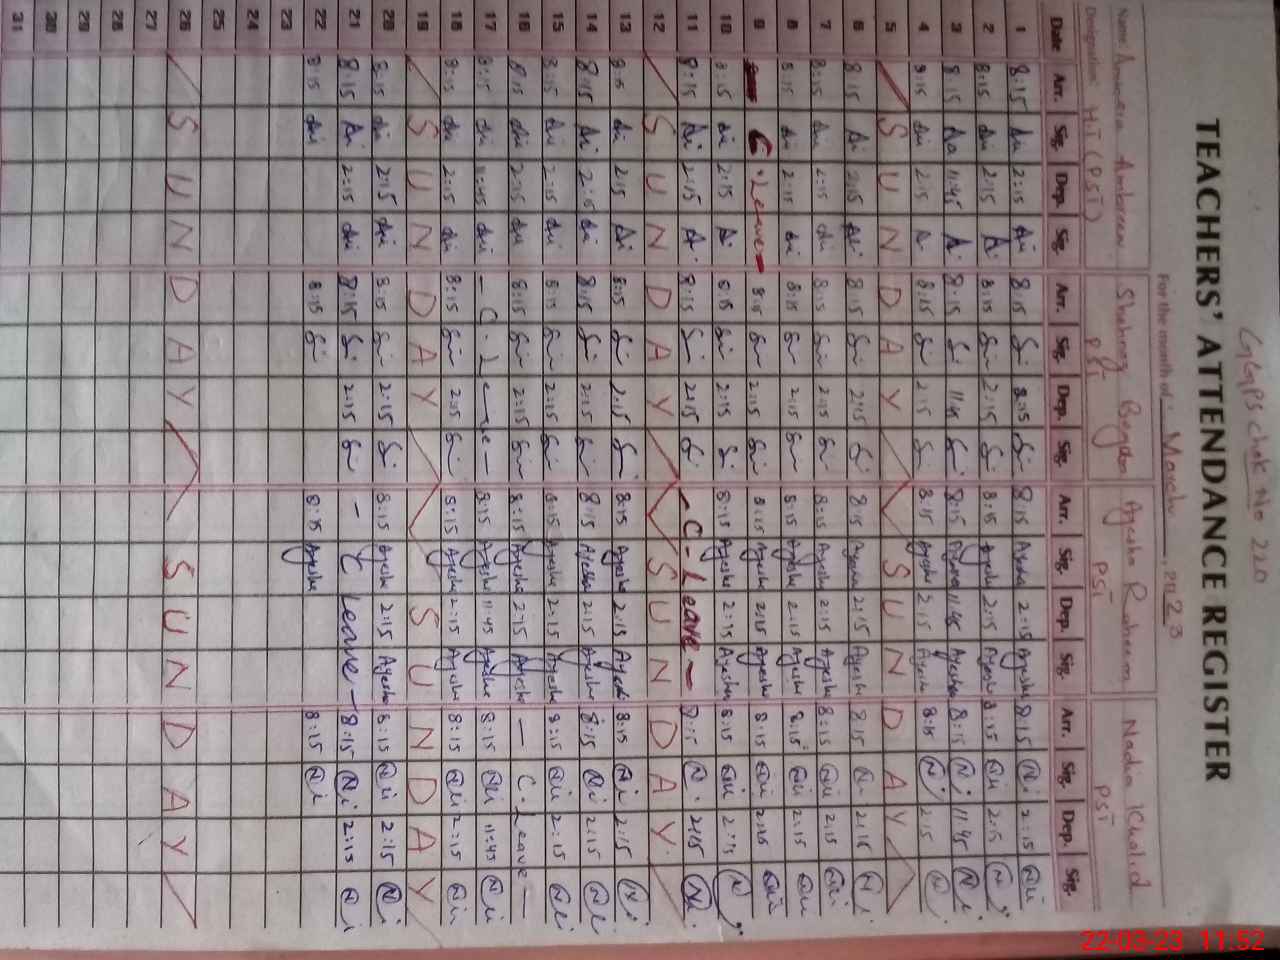 GGPS chak No 220
TEACHERS' ATTENDANCE REGISTER
For the month of: March 2023
Name Ambreen Shahnaz Begum Ayesha Raheem Nadia Khalid
Designation HT (PST) PST PST PST
Date Arr. Sig. Dep. Sig. Arr. Sig. Dep. Sig. Arr. Sig. Dep. Sig. Arr. Sig. Dep. Sig.
1 8:15 2:15 8:15 8:15 2:15 Ayesha 8:15 2:15
2 8:15 2:15 8:15 2:15 8:15 Ayesha 2:15 Ayesha 8:15 2:15
3 8:15 11:45 8:15 11:45 8:15 11:45 Ayesha 8:15 11:45
4 8:15 2:15 8:15 2:15 8:15 Ayesha 2:15 Ayesha 8:15 2:15
5 SUNDAY SUNDAY
6 8:15 2:15 8:15 2:15 8:15 2:15 Ayesha 8:15 2:15
7 8:15 2:15 8:15 2:15 8:15 Ayesha 2:15 Ayesha 8:15 2:15
8 8:15 2:15 8:15 2:15 8:15 Ayesha 2:15 Ayesha 8:15 2:15
9 C. Leave 8:15 2:15 8:15 Ayesha 2:15 Ayesha 8:15 2:15
10 8:15 2:15 8:15 2:15 8:15 Ayesha 2:15 Ayesha 8:15 2:15
11 8:15 2:15 8:15 2:15 - C - Leave - 8:15 2:15
12 SUNDAY SUNDAY
13 8:15 2:15 8:15 2:15 8:15 Ayesha 2:15 Ayesha 8:15 2:15
14 8:15 2:15 8:15 2:15 8:15 Ayesha 2:15 Ayesha 8:15 2:15
15 8:15 2:15 8:15 2:15 8:15 Ayesha 2:15 Ayesha 8:15 2:15
16 8:15 2:15 8:15 2:15 8:15 Ayesha 2:15 Ayesha - C. Leave -
17 8:15 11:45 - C. Leave - 8:15 Ayesha 11:45 Ayesha 8:15 11:45
18 8:15 2:15 8:15 2:15 8:15 Ayesha 2:15 Ayesha 8:15 2:15
19 SUNDAY SUNDAY
20 8:15 2:15 8:15 2:15 8:15 Ayesha 2:15 Ayesha 8:15 2:15
21 8:15 2:15 8:15 2:15 - C Leave - 8:15 2:15
22 8:15 8:15 8:15 Ayesha 8:15
23
24
25
26 SUNDAY SUNDAY
27
28
29
30
31
22-03-23 11:52